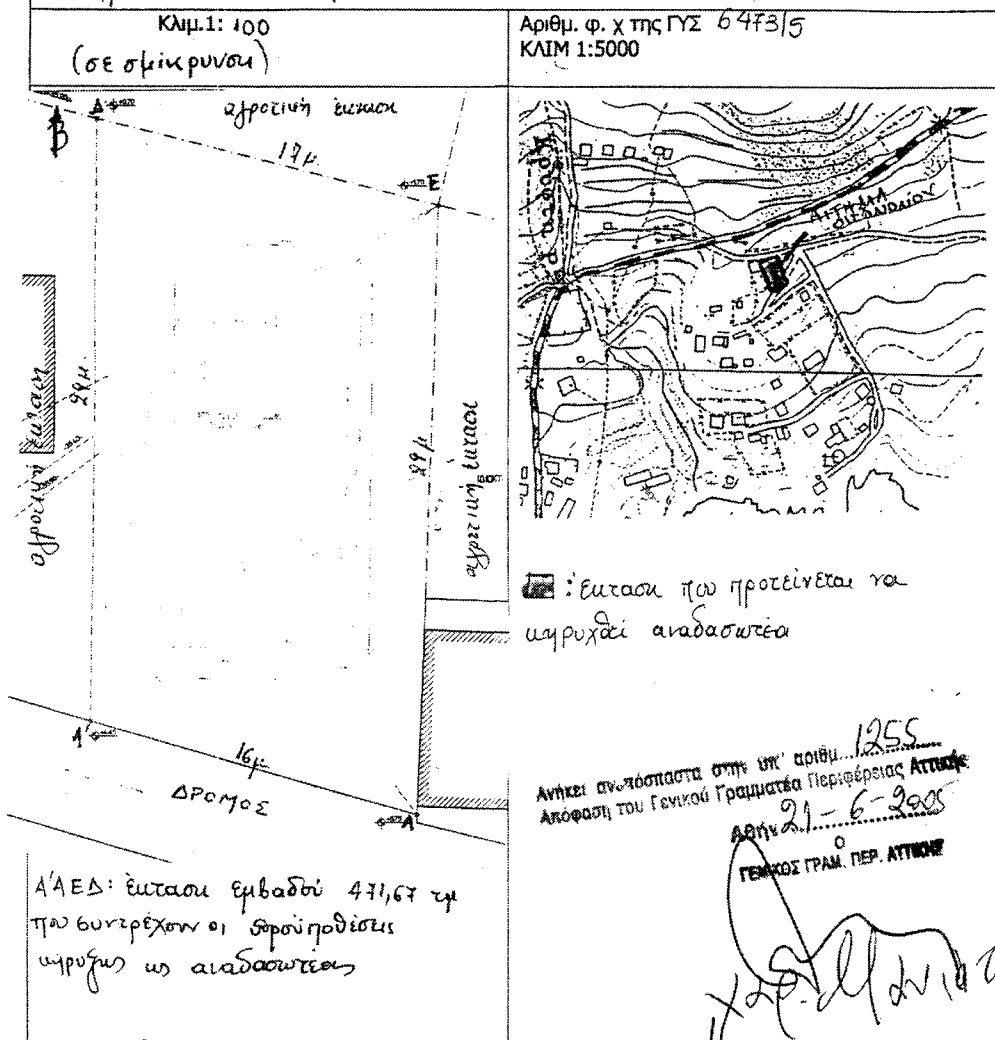 Κλιμ.1: 100
(σε σμίκρυνση)
Αριθμ. φ. χ της ΓΥΣ 6473/5
ΚΛΙΜ 1:5000
Β
Δ
αγροτική έκταση
17μ
Ε
αγροτική έκταση
29μ
αγροτική έκταση
Α'
16μ
Α
ΔΡΟΜΟΣ
Α'ΑΕΔ: έκταση εμβαδού 471,67 τμ
που συντρέχουν οι προϋποθέσεις
κήρυξης ως αναδασωτέας
: έκταση που προτείνεται να
κηρυχθεί αναδασωτέα
Ανήκει αναπόσπαστα στην υπ' αριθμ. 1255
Απόφαση του Γενικού Γραμματέα Περιφέρειας Αττικής
Αθήνα 21-6-2005
Ο
ΓΕΝΙΚΟΣ ΓΡΑΜ. ΠΕΡ. ΑΤΤΙΚΗΣ